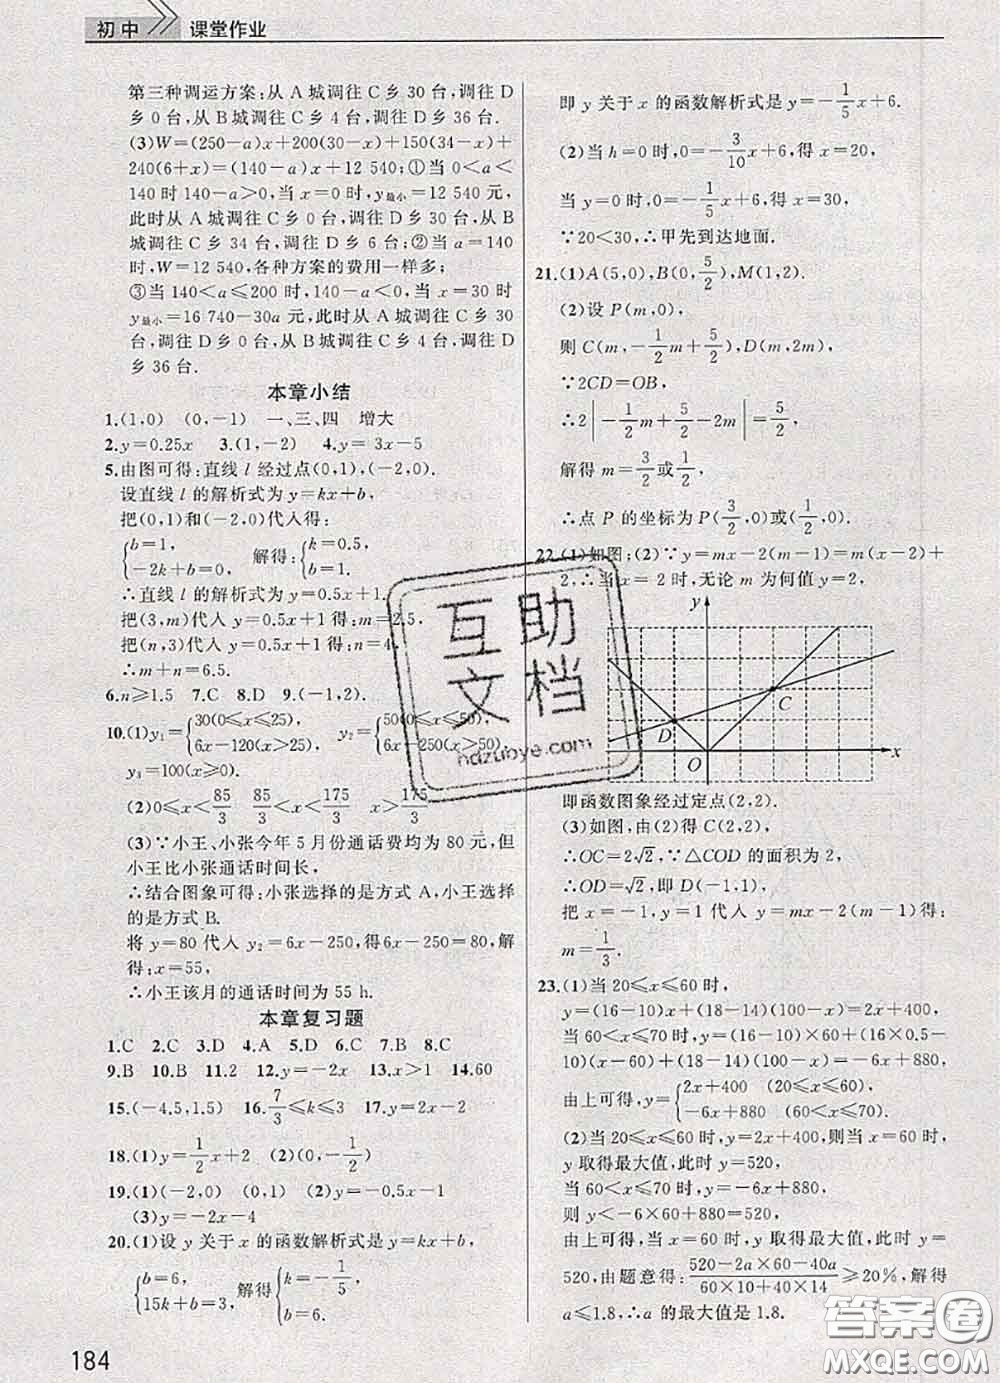 初中 课堂作业
第三种调运方案:从A城调往C乡30台,调往D
乡0台,从B城调往C乡4台,调往D乡36台.
(3)W=(250-a)x+200(30-x)+150(34-x)+
240(6+x)=(140-a)x+12 540;①当0<a<
140时140-a>0,当x=0时,y最小=12 540元,
此时从A城调往C乡0台,调往D乡30台,从B
城调往C乡34台,调往D乡6台;②当a=140
时,W=12 540,各种方案的费用一样多;
③当140<a≤200时,140-a<0,当x=30时
y最小=16 740-30a元,此时从A城调往C乡30
台,调往D乡0台,从B城调往C乡4台,调往D
乡36台.
本章小结
1.(1,0) (0,-1) 一、三、四 增大
2.y=0.25x 3.(1,-2) 4.y=3x-5
5.由图可得:直线l经过点(0,1),(-2,0).
设直线l的解析式为y=kx+b,
把(0,1)和(-2,0)代入得:
{b=1, -2k+b=0; 解得:{k=0.5, b=1.
∴直线l的解析式为y=0.5x+1.
把(3,m)代入y=0.5x+1得:m=2.5,
把(n,3)代入y=0.5x+1得:n=4,
∴m+n=6.5.
6.n≥1.5 7.C 8.D 9.(-1,1)
10.(1)y₁={30(0≤x≤25), 6x-120(x>25); y₂={50(0≤x≤50), 6x-250(x>50);
y₃=100(x≥0).
(2)0≤x<85/3 85/3<x<175/3 x>175/3
(3)∵小王、小张今年5月份通话费均为80元,但
小王比小张通话时间长,
∴结合图象可得:小张选择的是方式A,小王选择
的是方式B.
将y=80代入y₂=6x-250,得6x-250=80,解
得:x=55,
∴小王该月的通话时间为55 h.
本章复习题
1.C 2.C 3.D 4.A 5.D 6.C 7.B 8.C
9.B 10.C 11.2 12.y=-2x 13.x>1 14.60
15.(-4.5,1.5) 16.7/3≤k≤3 17.y=2x-2
18.(1)y=1/2x+2 (2)(0,-1)
19.(1)(-2,0) (0,1) (2)y=0.5x-1
(3)y=-2x-4
20.(1)设y关于x的函数解析式是y=kx+b,
{b=6, 15k+b=3, 解得{k=-1/5, b=6.
184
即y关于x的函数解析式是y=-1/5x+6.
(2)当h=0时,0=-3/10x+6,得x=20,
当y=0时,0=-1/5x+6,得x=30,
∵20<30,∴甲先到达地面.
21.(1)A(5,0),B(0,5/2),M(1,2).
(2)设P(m,0),
则C(m,-1/2m+5/2),D(m,2m).
∵2CD=OB,
∴2|-1/2m+5/2-2m|=5/2,
解得m=3/2或1/2,
∴点P的坐标为P(3/2,0)或(1/2,0).
22.(1)如图;(2)∵y=mx-2(m-1)=m(x-2)+
2,∴当x=2时,无论m为何值y=2,
y
C
D
O
x
即函数图象经过定点(2,2).
(3)如图,由(2)得C(2,2),
∴OC=2√2,∵△COD的面积为2,
∴OD=√2,即D(-1,1),
把x=-1,y=1代入y=mx-2(m-1)得:
m=1/3.
23.(1)当20≤x≤60时,
y=(16-10)x+(18-14)(100-x)=2x+400,
当60<x≤70时,y=(16-10)×60+(16×0.5-
10)(x-60)+(18-14)(100-x)=-6x+880,
由上可得,y={2x+400 (20≤x≤60) -6x+880 (60<x≤70).
(2)当20≤x≤60时,y=2x+400,则当x=60时,
y取得最大值,此时y=520,
当60<x≤70时,y=-6x+880,
则y<-6×60+880=520,
由上可得,当x=60时,y取得最大值,此时y=
520,由题意得:(520-2a×60-40a)/(60×10+40×14)≥20%,解得
a≤1.8,∴a的最大值是1.8.
互助
文档
hdzubye.com
答案圈
MXQE.COM